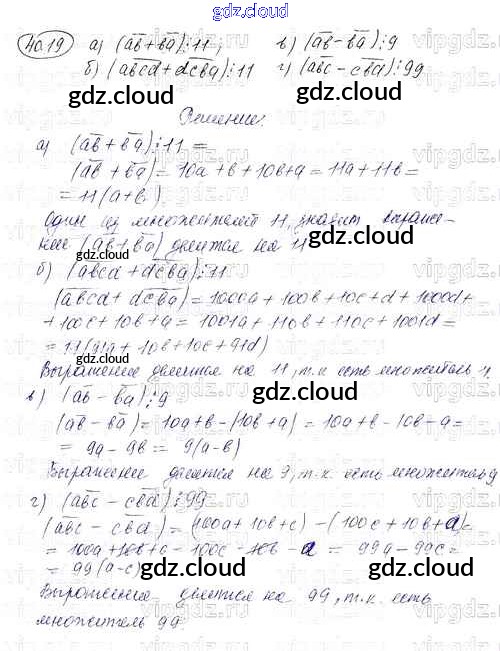 gdz.cloud
40.19 а) (ab+ba)⋮11; в) (ab-ba)⋮9
б) (abcd+dcba)⋮11 г) (abc-cba)⋮99
gdz.cloud gdz.cloud
Решение:
а) (ab+ba)⋮11 =
(ab+ba)=10a+b+10b+a=11a+11b=
=11(a+b)
Один из множителей 11, значит выраже-
ние (ab+ba) делится на 11
gdz.cloud gdz.cloud
б) (abcd+dcba)⋮11
(abcd+dcba)=1000a+100b+10c+d+1000d+
+100c+10b+a=1001a+110b+110c+1001d=
=11(91a+10b+10c+91d)
gdz.cloud gdz.cloud
Выражение делится на 11, т.к есть множитель 11
в) (ab-ba)⋮9
(ab-ba)=10a+b-(10b+a)=10a+b-10b-a=
=9a-9b=9(a-b)
gdz.cloud gdz.cloud
Выражение делится на 9, т.к. есть множитель 9
г) (abc-cba)⋮99
(abc-cba)=(100a+10b+c)-(100c+10b+a)=
=100a+10b+c-100c-10b-a=99a-99c=
=99(a-c)
gdz.cloud gdz.cloud
Выражение делится на 99, т.к. есть
множитель 99
gdz.cloud